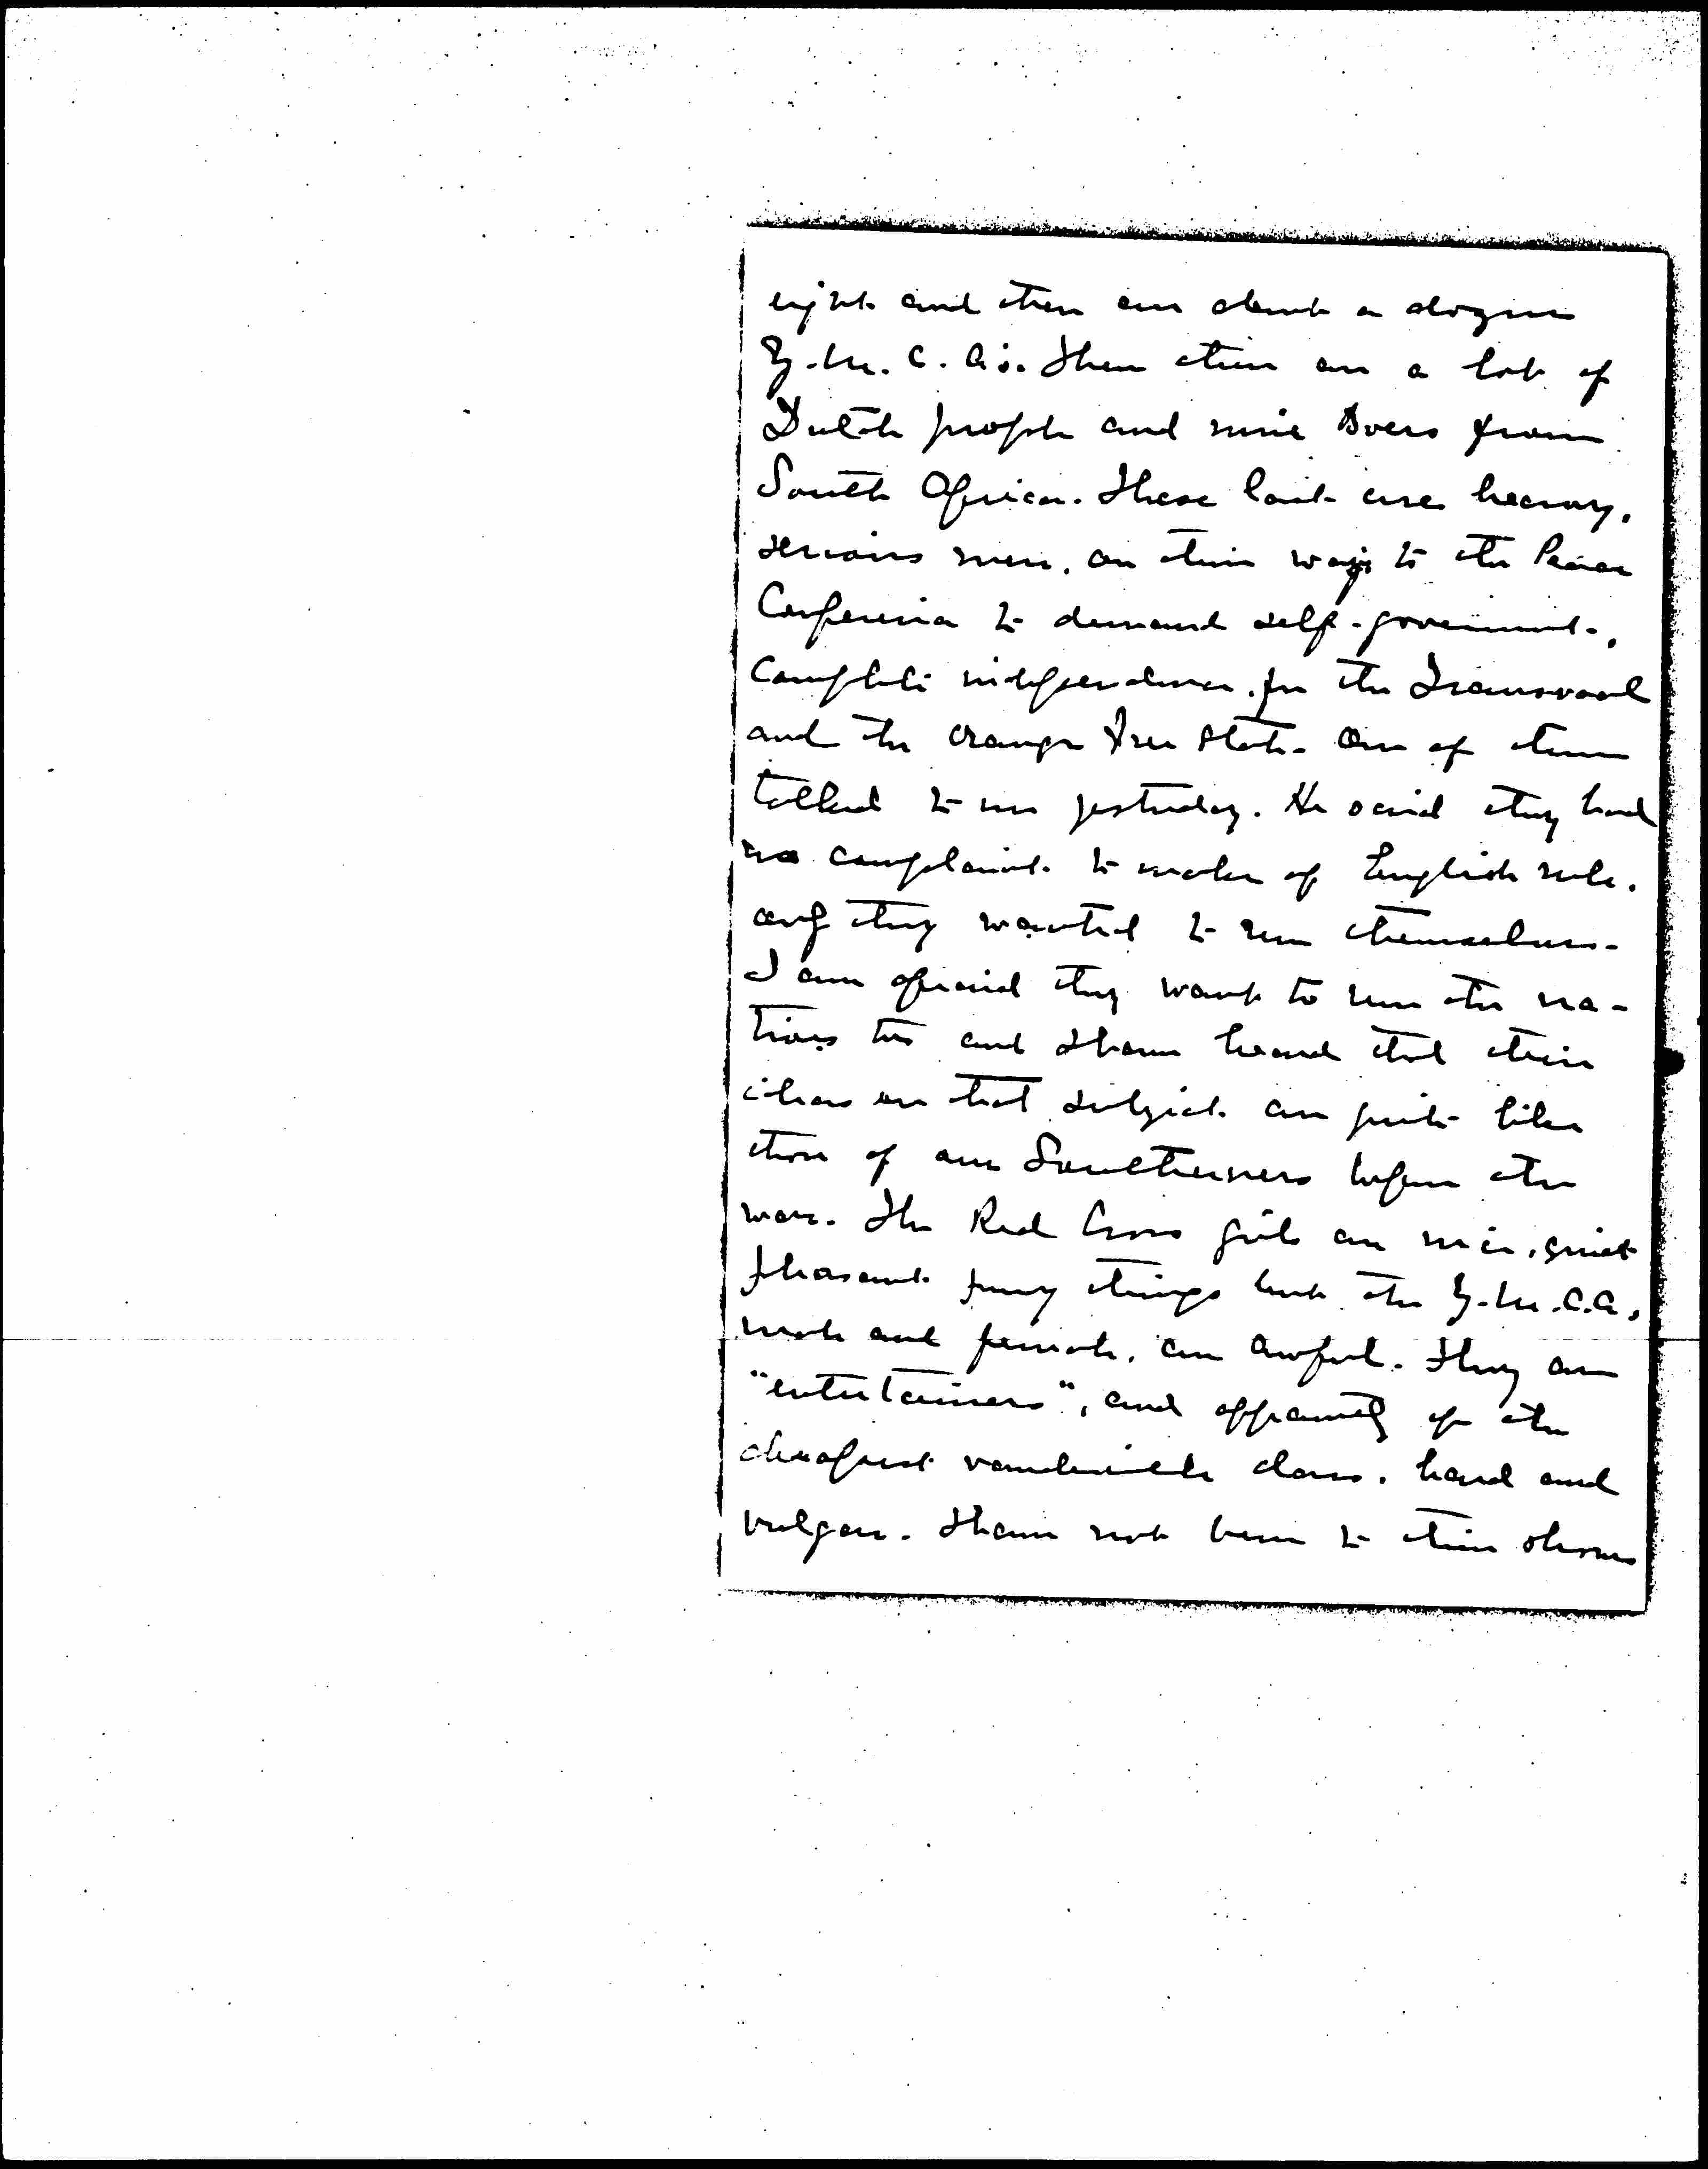 eight and there are about a dozen
Y.M.C.A's. Then there are a lot of
Dutch people and nine Boers from
South Africa. These last are heavy,
serious men, on their way to the Peace
Conference to demand self-government,
complete independence, for the Transvaal
and the Orange Free State. One of them
talked to me yesterday. He said they had
no complaint to make of English rule,
only they wanted to run themselves.
I am afraid they want to run the na-
tives too and I have heard that their
ideas on that subject are quite like
those of our Southerners before the
war. The Red Cross girls are nice, quiet
pleasant young things but the Y.M.C.A,
male and female, are awful. They are
"entertainers", and apparently of the
cheapest vaudeville class, hard and
vulgar. I have not been to their shows